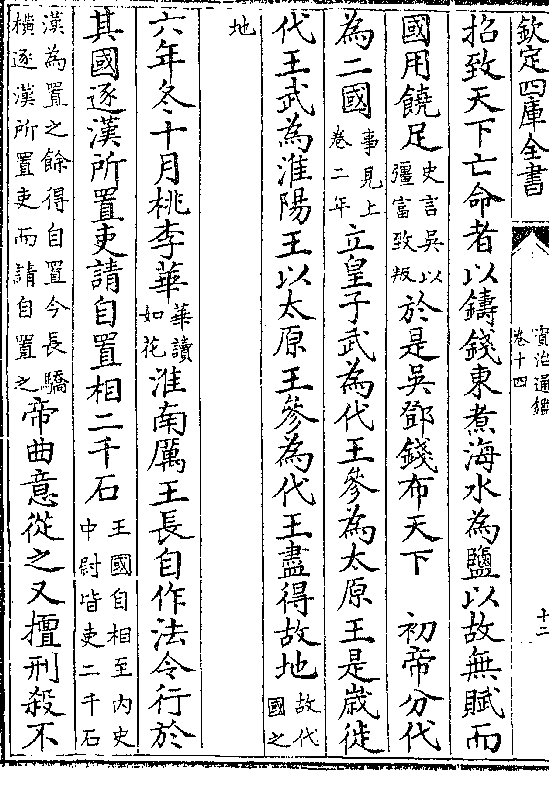 欽定四庫全書
資治通鑑
卷十四
十二
招致天下亡命者以鑄錢東煮海水為鹽以故無賦而
國用饒足史言吳以彊富致叛於是吳鄧錢布天下　初帝分代
為二國事見上卷二年立皇子武為代王參為太原王是歲徙
代王武為淮陽王以太原王參為代王盡得故地故代國之
地
六年冬十月桃李華華讀如花淮南厲王長自作法令行於
其國逐漢所置吏請自置相二千石王國自相至内史中尉皆吏二千石
漢為置之餘得自置今長驕橫逐漢所置吏而請自置之帝曲意從之又擅刑殺不